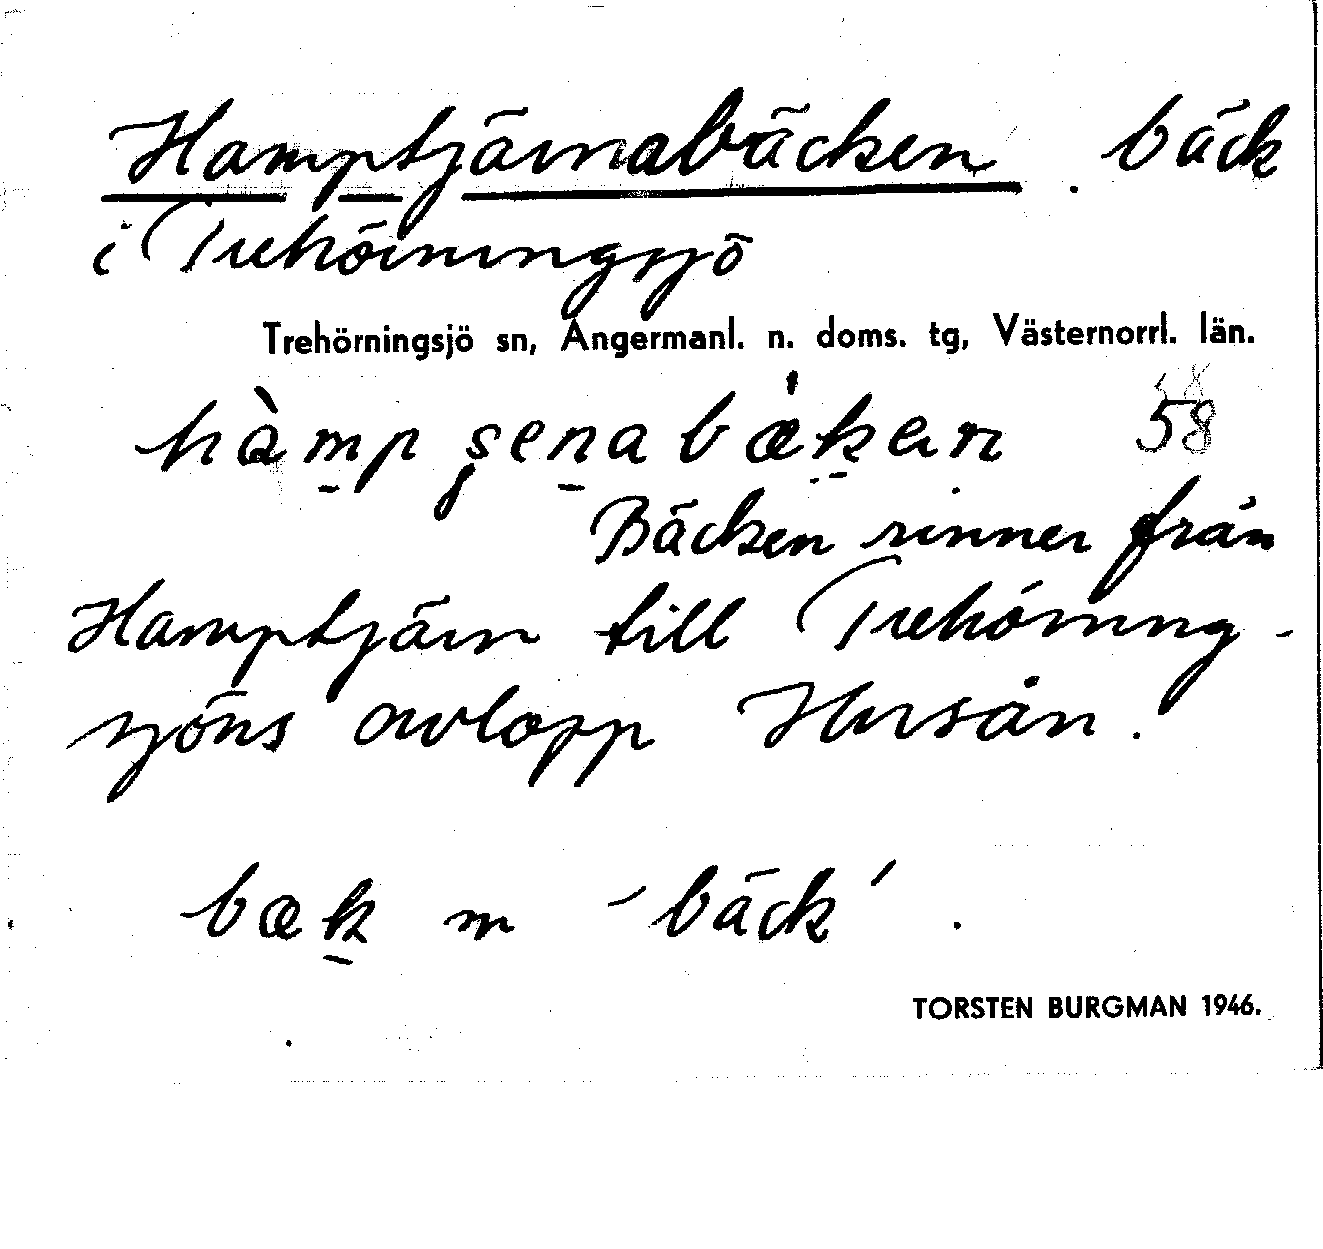 Hamptjärnabäcken. bäck
i Trehörningsjö
Trehörningsjö sn, Ångermanl. n. doms. tg, Västernorrl. län.
hàmp şenabækan 58
Bäcken rinner från
Hamptjärn till Trehörning-
sjöns avlopp Husån.
bæk m 'bäck'.
TORSTEN BURGMAN 1946.